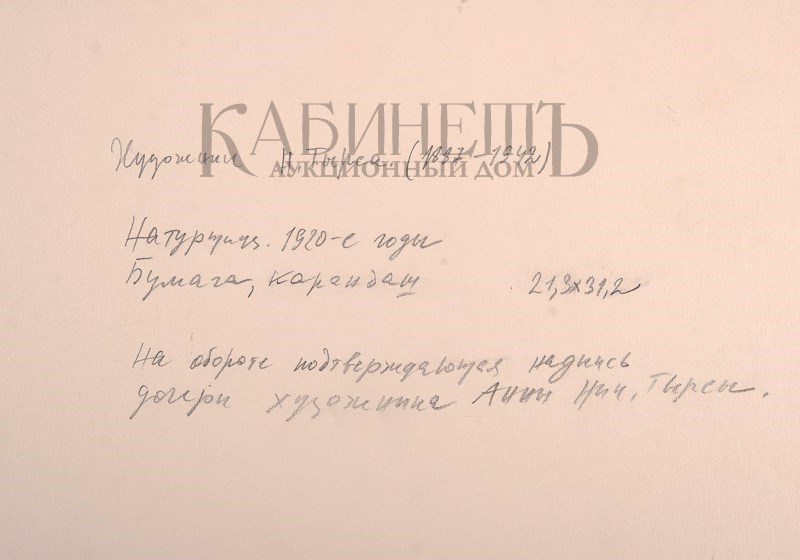 КАБИНЕТЪ
АУКЦИОННЫЙ ДОМ
Художник Н. Тырса (1887-1942)
Натурщица. 1920-е годы
Бумага, карандаш 21,3x31,2
На обороте подтверждающая надпись
дочери художника Анны Ник. Тырсы.